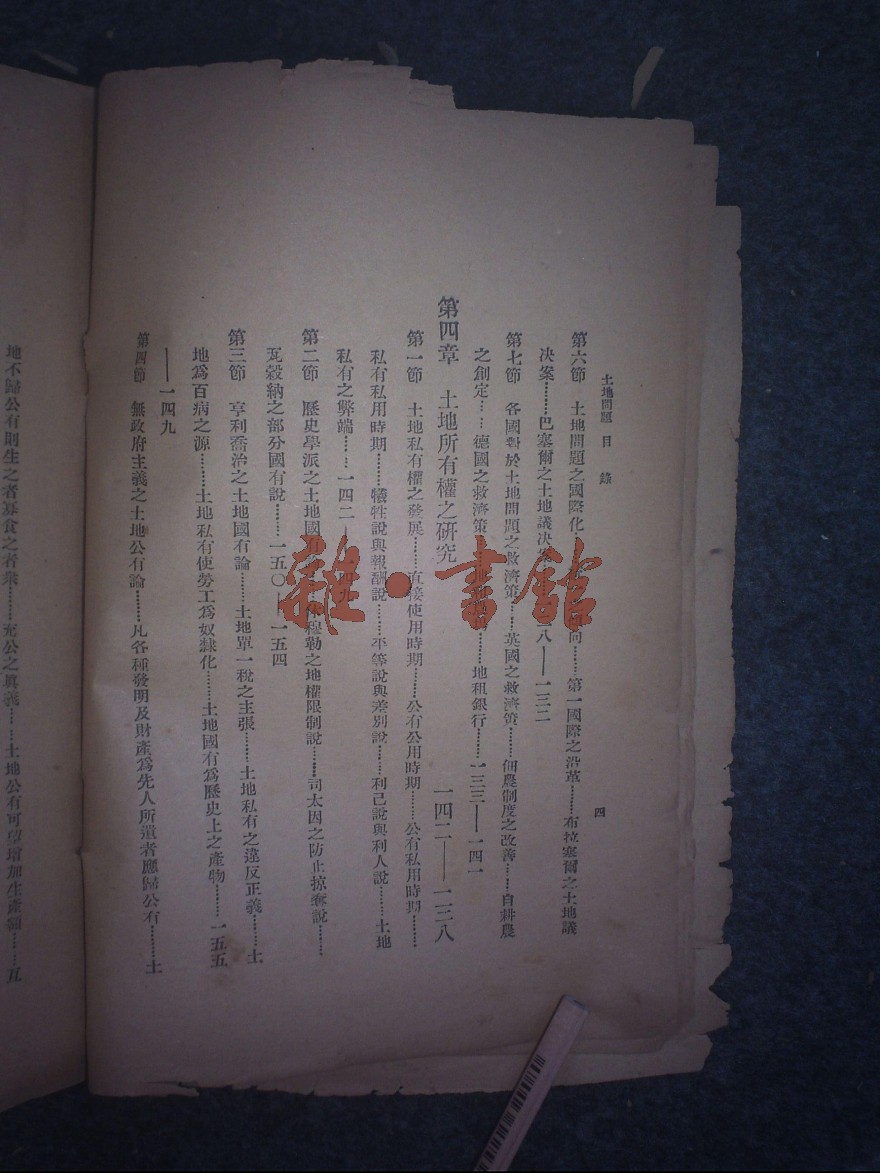 土地問題 目錄 四
第六節 土地問題之國際化……向……第一國際之沿革……布拉塞爾之土地議
決案……巴塞爾之土地議決案……八——一三二
第七節 各國對於土地問題之救濟策……英國之救濟策……佃農制度之改善……自耕農
之創定……德國之救濟策……地租銀行……一三三——一四一
第四章 土地所有權之研究 一四二——一三八
第一節 土地私有權之發展……直接使用時期……公有公用時期……公有私用時期……
私有私用時期……犧牲說與報酬說……平等說與差別說……利己說與利人說……土地
私有之弊端……一四二——四九
第二節 歷史學派之土地國有……穆勒之地權限制說……司太因之防止掠奪說……
瓦穀納之部分國有說……一五〇——一五四
第三節 亨利喬治之土地國有論……土地單一稅之主張……土地私有之違反正義……土
地爲百病之源……土地私有使勞工爲奴隸化……土地國有爲歷史上之產物……一五五
——一四九
第四節 無政府主義之土地公有論……凡各種發明及財產爲先人所遺者應歸公有……土
地不歸公有則生之者寡食之者衆……充公之眞義……土地公有可望增加生產額……五
雜·書館